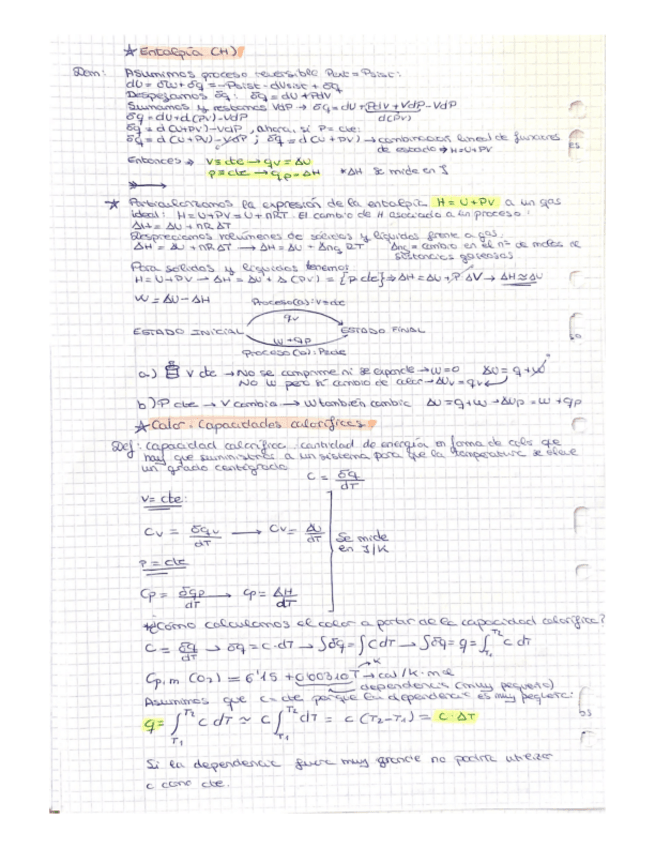 ★ Entalpía (H)
Dem: Asumimos proceso reversible Pext = Psist:
dU = δW + δq = -Psist · dVsist + δq
Despejamos δq: δq = dU + PdV
Sumamos y restamos VdP → δq = dU + PdV + VdP - VdP
d(PV)
δq = dU + d(PV) - VdP
δq = d(U+PV) - VdP, ahora, si P = cte:
δq = d(U+PV) - VdP ; δq = d(U+PV) → combinación lineal de funciones
de estado → H=U+PV
Entonces → V = cte → qv = ΔU
P = cte → qp = ΔH *ΔH se mide en J
★ Particularizamos la expresión de la entalpía H = U+PV a un gas
ideal: H = U+PV = U + nRT. El cambio de H asociado a un proceso:
ΔH = ΔU + nRΔT
Despreciamos volúmenes de sólidos y líquidos frente a gas,
ΔH = ΔU + nRΔT → ΔH = ΔU + Δng RT Δng = cambio en el nº de moles de
sustancias gaseosas
Para sólidos y líquidos tenemos:
H = U+PV → ΔH = ΔU + Δ(PV) = {P cte} ⇒ ΔH = ΔU + P ΔV → ΔH ≃ ΔU
W = ΔU - ΔH
Proceso (a): V=cte
qv
ESTADO INICIAL ESTADO FINAL
W + qp
Proceso (b): P=cte
a.) V cte → No se comprime ni se expande → W=0 ΔU = q + W
No W pero sí cambio de calor → ΔUv = qv
b) P cte → V cambia → W también cambia ΔU = q + W → ΔUp = W + qp
★ Calor. Capacidades caloríficas
Def: capacidad calorífica: cantidad de energía en forma de calor que
hay que suministrar a un sistema para que la temperatura se eleve
un grado centígrado
C = δq/dT
V = cte:
Cv = δqv/dT → Cv = ΔU/dT Se mide
en J/K
P = cte
Cp = δqp/dT → Cp = ΔH/dT
¿Cómo calculamos el calor a partir de la capacidad calorífica?
C = δq/dT → δq = C·dT → ∫δq = ∫C dT → ∫δq = q = ∫T1 T2 C dT
Cp,m (O2) = 6'15 + 0'00310 T → cal/K·mol
K
dependencia (muy pequeña)
Asumimos que C = cte porque la dependencia es muy pequeña:
q = ∫T1 T2 C dT ≃ C ∫T1 T2 dT = C (T2-T1) = C · ΔT
Si la dependencia fuera muy grande no podría utilizar
C como cte.